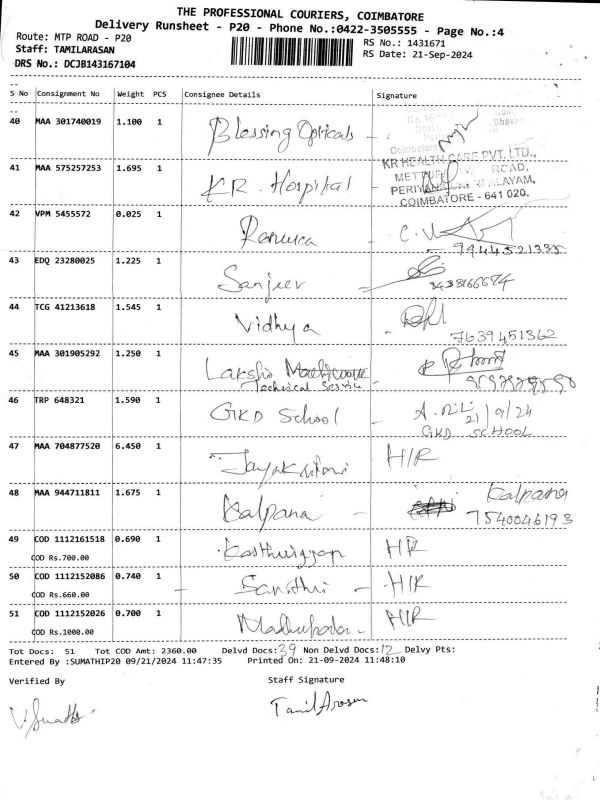 THE PROFESSIONAL COURIERS, COIMBATORE
Delivery Runsheet - P20 - Phone No.:0422-3505555 - Page No.:4
Route: MTP ROAD - P20
RS No.: 1431671
Staff: TAMILARASAN
RS Date: 21-Sep-2024
DRS No.: DCJB143167104
S No Consignment No Weight PCS Consignee Details Signature
40 MAA 301740019 1.100 1 Blessing Opticals
Coimbatore
41 MAA 575257253 1.695 1 KR. Hospital
KR HEALTH CARE PVT. LTD.,
ROAD,
COIMBATORE - 641 020.
42 VPM 5455572 0.025 1 Renuca
9444521335
43 EDQ 23280025 1.225 1 Sanjeev
44 TCG 41213618 1.545 1 Vidhya
7639451362
45 MAA 301905292 1.250 1 Lakshi
Technical Service
46 TRP 648321 1.590 1 GKD School
21/9/24
GKD SCHOOL
47 MAA 704877520 6.450 1 H/R
48 MAA 944711811 1.675 1 Kalpana - Kalpana
7540046193
49 COD 1112161518 0.690 1 HR
COD Rs.700.00
50 COD 1112152086 0.740 1 - H/R
COD Rs.660.00
51 COD 1112152026 0.700 1 H/R
COD Rs.1000.00
Tot Docs: 51 Tot COD Amt: 2360.00 Delvd Docs:39 Non Delvd Docs:12 Delvy Pts:
Entered By :SUMATHIP20 09/21/2024 11:47:35 Printed On: 21-09-2024 11:48:10
Verified By Staff Signature
Tamil Arasan